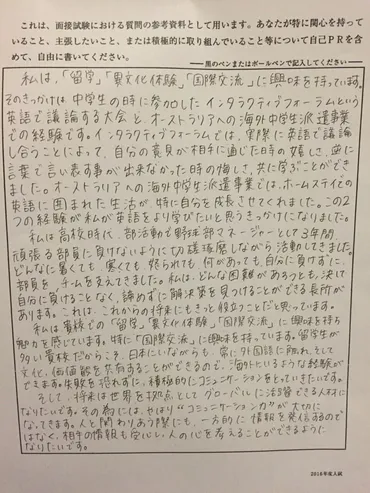 これは、面接試験における質問の参考資料として用います。あなたが特に関心を持って
いること、主張したいこと、または積極的に取り組んでいること等について自己PRを含
めて、自由に書いてください。
黒のペンまたはボールペンで記入してください
私は、「留学」「異文化体験」「国際交流」に興味を持っています。
そのきっかけは、中学生の時に参加したインタラクティブフォーラムという
英語で議論する大会と、オーストラリアへの海外中学生派遣事業
での経験です。インタラクティブフォーラムでは、実際に英語で議論
し合うことによって、自分の意見が相手に通じた時の嬉しさ、逆に
言葉で言い表す事が出来なかった時の悔しさ、共に学ぶことができ
ました。オーストラリアへの海外中学生派遣事業では、ホームステイでの
英語に囲まれた生活が、特に自分を成長させてくれました。この2
つの経験が私が英語をより学びたいと思うきっかけになりました。
私は高校時代、部活動で野球部マネージャーとして3年間
頑張る部員に負けないように切磋琢磨しながら活動してきました。
どんなに暑くても、寒くても、怒られても、何があっても、自分に負けずに、
部員を、チームを支えてきました。私は、どんな困難があろうとも、決して
自分に負けることなく、諦めずに解決策を見つけることができる長所が
あります。これは、これからの将来にもきっと役立つことだと思っています。
私は貴校での「留学」「異文化体験」「国際交流」に興味を持ち
魅力を感じています。特に「国際交流」に興味を持っています。留学生が
多い貴校だからこそ、日本にいながらも、常に外国語に触れ、そして
文化、価値観を共有することができるので、海外にいるような経験が
できます。失敗を恐れずに、積極的にコミュニケーションをとっていきたいです。
そして、将来は世界を拠点としてグローバルに活躍できる人材に
なりたいです。その為には、やはり“コミュニケーション力”が大切に
なってきます。人と関わりあう際にも、一方的に情報を発信するので
はなく、相手の情報も受信し、人の心を考えることができるように
なりたいです。
2018年度入試